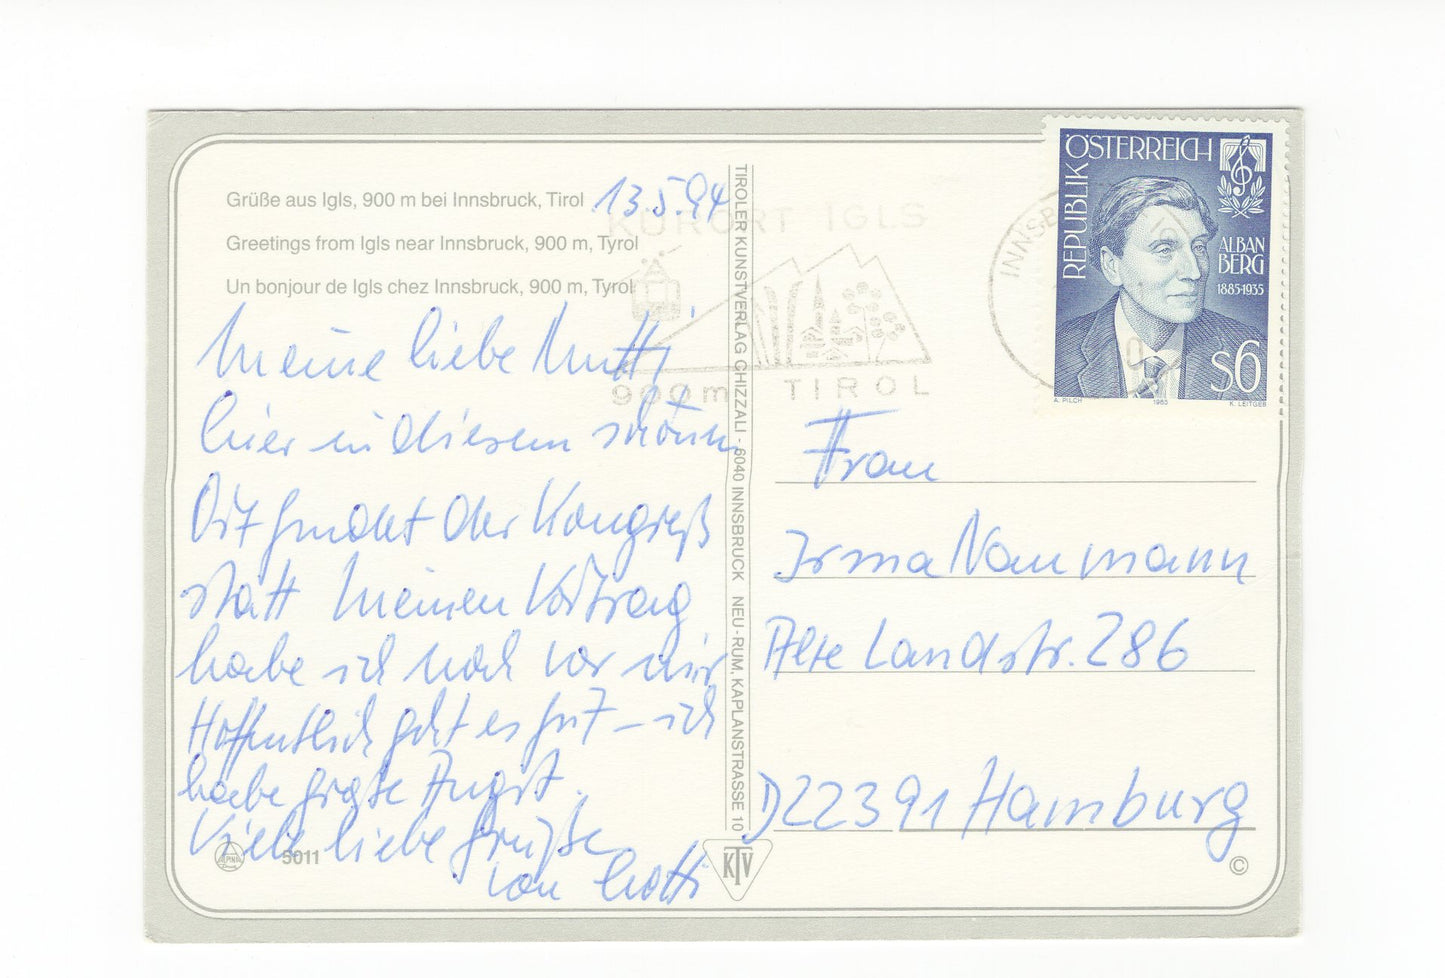 Grüße aus Igls, 900 m bei Innsbruck, Tirol
13.5.94
Greetings from Igls near Innsbruck, 900 m, Tyrol
Un bonjour de Igls chez Innsbruck, 900 m, Tyrol
Meine liebe Mutti
hier in diesem schönen
Ort findet der Kongreß
statt Meinen Vortrag
habe ich noch vor mir
Hoffentlich geht es gut – ich
habe große Angst.
Viele liebe Grüße
von
5011
TIROLER KUNSTVERLAG CHIZZALI - 6040 INNSBRUCK NEU-RUM, KAPLANSTRASSE 10
KTV
KURORT IGLS
900m TIROL
INNSB
REPUBLIK ÖSTERREICH
ALBAN
BERG
1885-1935
S6
A. PILCH 1985 K. LEITGEB
Frau
Irma Naumann
Alte Landstr. 286
D 22391 Hamburg
©